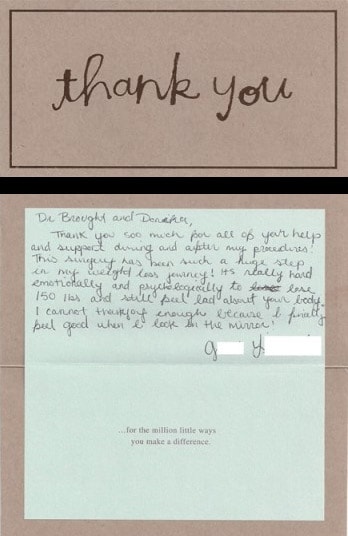 thank you
Dr. Brought and
Thank you soo much for all of your help
and support during and after my procedures!
This surgery has been such a huge step
in my weight loss journey! Its really hard
emotionally and psychologically to lose
150 lbs and still feel bad about your body.
I cannot thank you enough because I finally
feel good when I look in the mirror!
...for the million little ways
you make a difference.